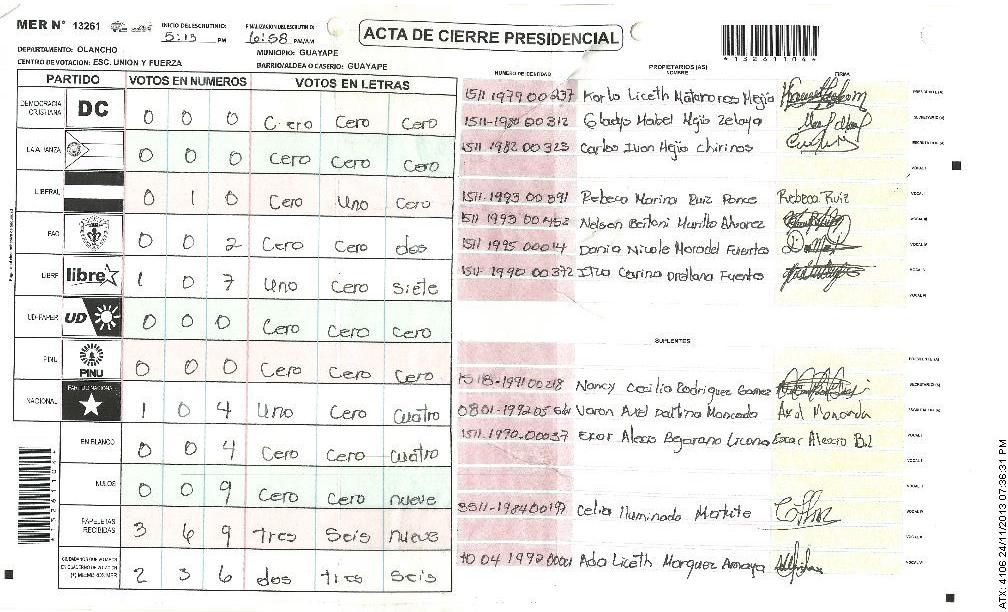 MER N° 13261
INICIO DEL ESCRUTINIO: 5:13 PM
FINALIZACION DEL ESCRUTINIO: 6:58 PM/AM
ACTA DE CIERRE PRESIDENCIAL
*13261106*
DEPARTAMENTO: OLANCHO
MUNICIPIO: GUAYAPE
CENTRO DE VOTACION: ESC. UNION Y FUERZA
BARRIO/ALDEA O CASERIO: GUAYAPE
PARTIDO VOTOS EN NUMEROS VOTOS EN LETRAS
DEMOCRACIA CRISTIANA DC 0 0 0 Cero Cero Cero
LA ALIANZA 0 0 0 Cero Cero Cero
LIBERAL 0 1 0 Cero Uno Cero
PAC 0 0 2 Cero Cero dos
LIBRE libre 1 0 7 Uno Cero Siete
UD-FAPER UD 0 0 0 Cero Cero Cero
PINU PINU 0 0 0 Cero Cero Cero
NACIONAL PARTIDO NACIONAL 1 0 4 Uno Cero Cuatro
EN BLANCO 0 0 4 Cero Cero Cuatro
NULOS 0 0 9 Cero Cero nueve
PAPELETAS RECIBIDAS 3 6 9 Tres Seis nueve
2 3 6 dos tres Seis
NUMERO DE IDENTIDAD PROPIETARIOS (AS) NOMBRE FIRMA
1511 1979 00237 Karla Liceth Matamoros Mejia PRESIDENTE(A)
1511-1980 00312 Gladys Mabel Mejia Zelaya SECRETARIO (A)
1511 1982 00323 Carlos Ivan Mejia Chirinos ESCRUTADOR (A)
VOCAL I
1511-1993 00391 Rebeca Marina Ruiz Ponce Rebeca Ruiz VOCAL II
1511 1993 00452 Nelson Murillo Alvarez VOCAL III
1511 1995 00014 Dania Nicole Moradel Fuentes VOCAL IV
1511-1990 00372 Carina Orellana Fuentes VOCAL V
VOCAL VI
SUPLENTES
PRESIDENTE (A)
1518-1991 00218 Nancy Cecilia Rodriguez Gomez SECRETARIO (A)
0801-1992 Axel Moncada Axel Moncada ESCRUTADOR (A)
1511-1990-00037 Alexis Bejarano
VOCAL I
VOCAL II
VOCAL III
1984 00197 Celia Iluminada VOCAL IV
VOCAL V
1992 0001 Ada Liceth Marquez Amaya VOCAL VI
*13261106*
ATX: 4106 24/11/2013 07:36:31 PM